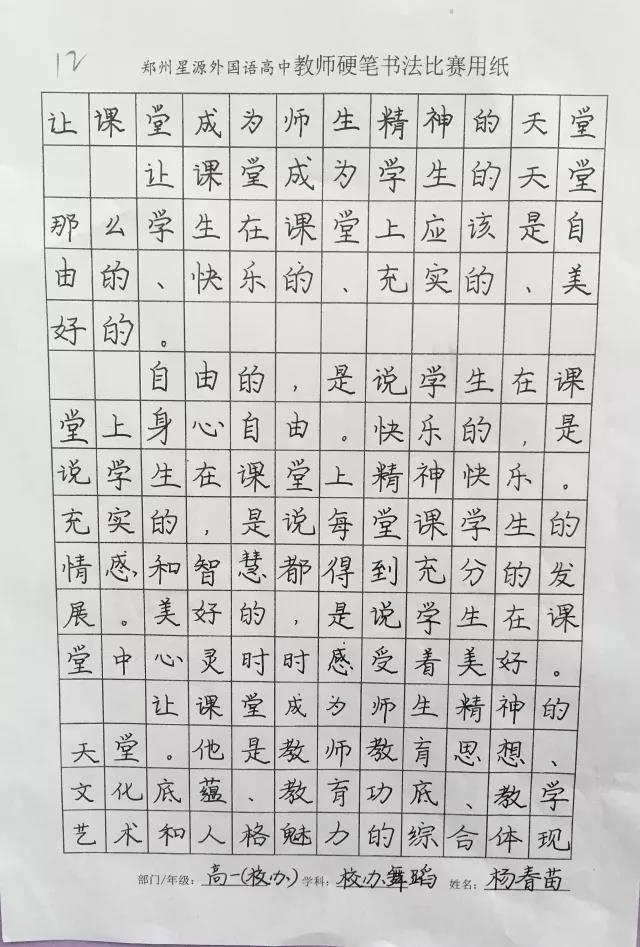 12
郑州星源外国语高中教师硬笔书法比赛用纸
让课堂成为师生精神的天堂
让课堂成为学生的天堂
那么学生在课堂上应该是自
由的、快乐的、充实的、美
好的。
自由的，是说学生在课
堂上身心自由。快乐的，是
说学生在课堂上精神快乐。
充实的，是说每堂课学生的
情感和智慧都得到充分的发
展。美好的，是说学生在课
堂中心灵时时感受着美好。
让课堂成为师生精神的
天堂。他是教师教育思想、
文化底蕴、教育功底、教学
艺术和人格魅力的综合体现
部门/年级：高一(校办)学科：校办舞蹈 姓名：杨春苗